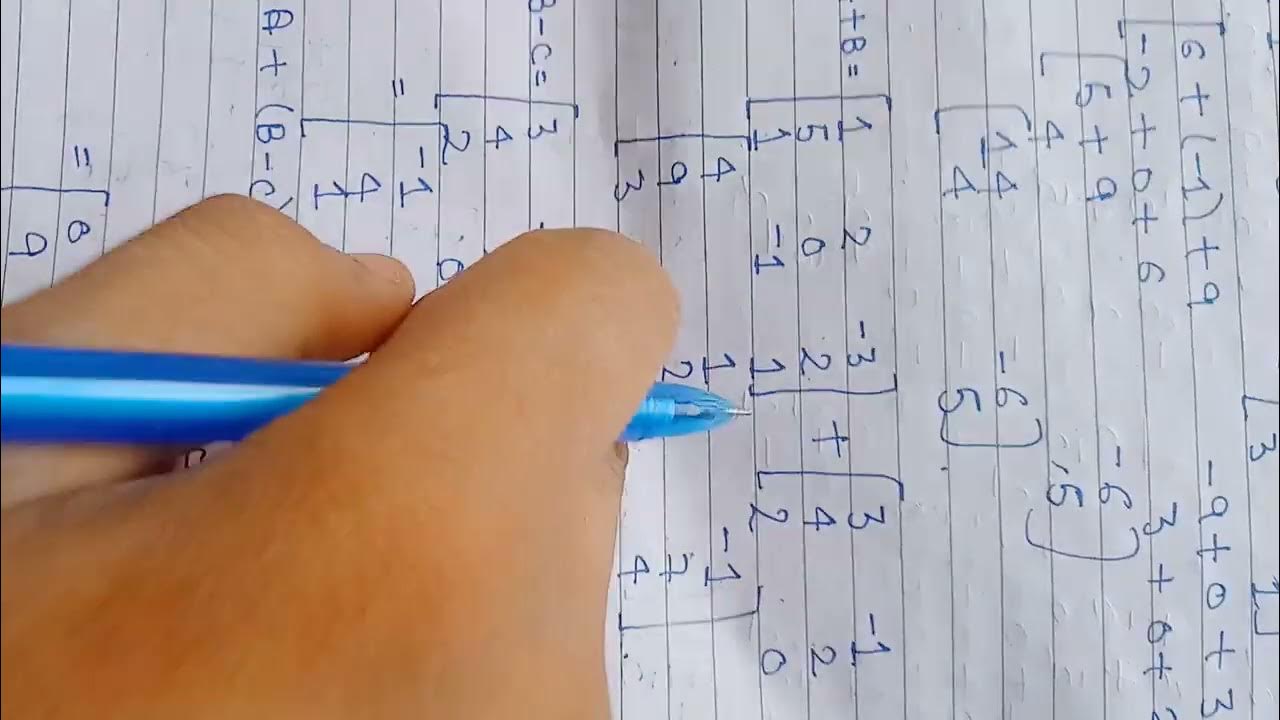 [3 1]
6+(-1)+9 -9+0+3
-2+0+6 3+6+2
5+9 -6
4 5
14 -6
4 5
+B= 1 2 -3 3 -1
5 0 2 + 4 2
1 -1 1 2 0
4 1 -1
9 2 7
3 4
B-C= 3
4
2
= -1
4
1
A+(B-C)
=
9